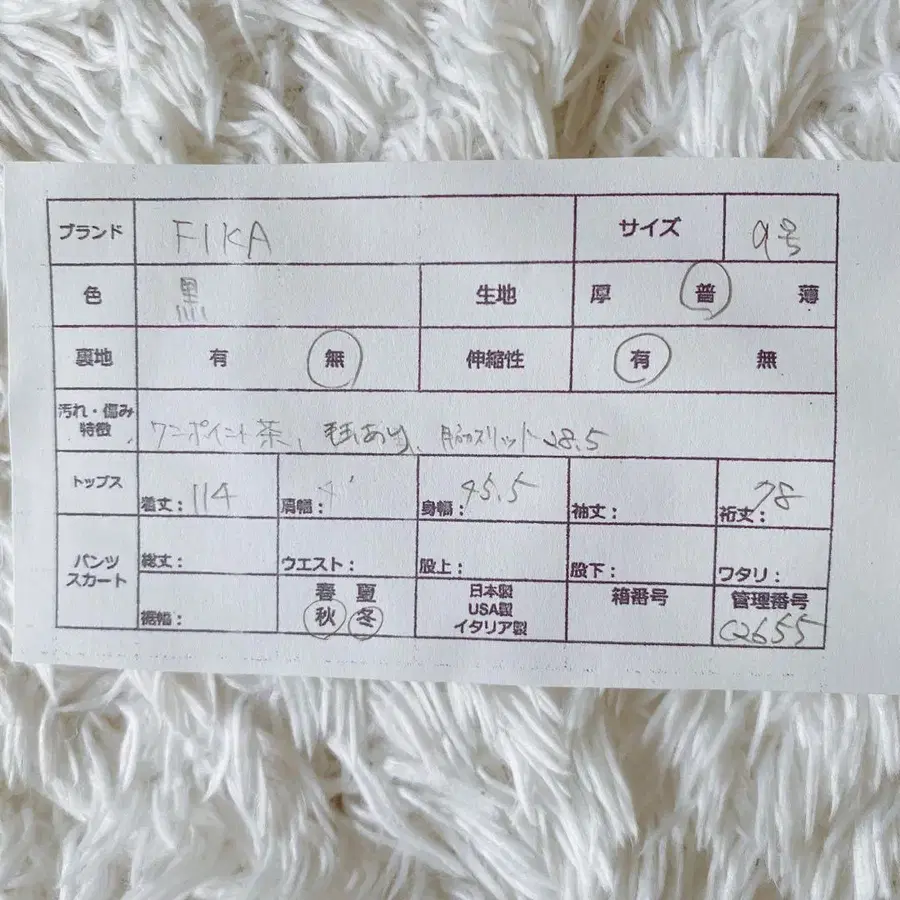 ブランド FIKA サイズ 9号
色 黒 生地 厚 普 薄
裏地 有 無 伸縮性 有 無
汚れ・傷み
特徴 ワンポイント茶、毛玉あり、脇スリット28.5
トップス 着丈：114 肩幅： 身幅：45.5 袖丈： 裄丈：78
パンツ
スカート 総丈： ウエスト： 股上： 股下： ワタリ：
裾幅： 春 夏 秋 冬
日本製
USA製
イタリア製
箱番号
管理番号
C2655